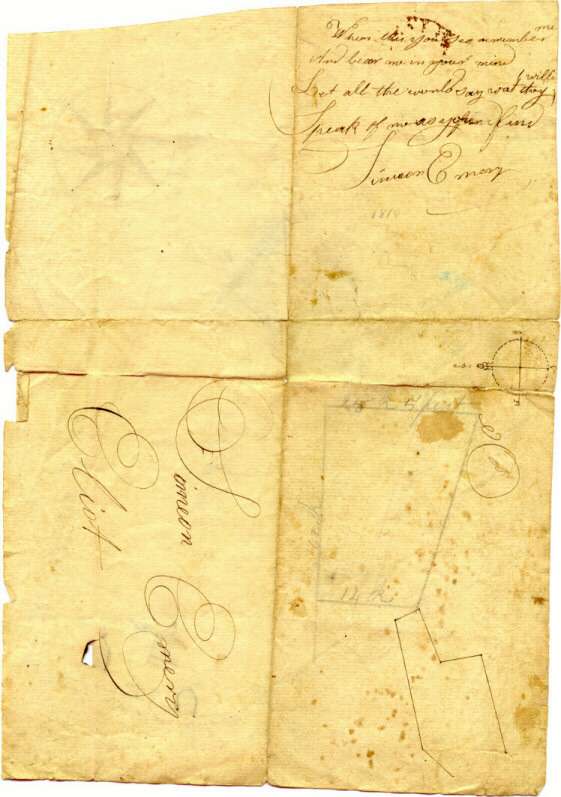 When this you see remember me
And bear me in your mind
Let all the world say wat they will
Speak of me as you find
Simeon Emery
1810
Simeon Emery
Eliot
14 R